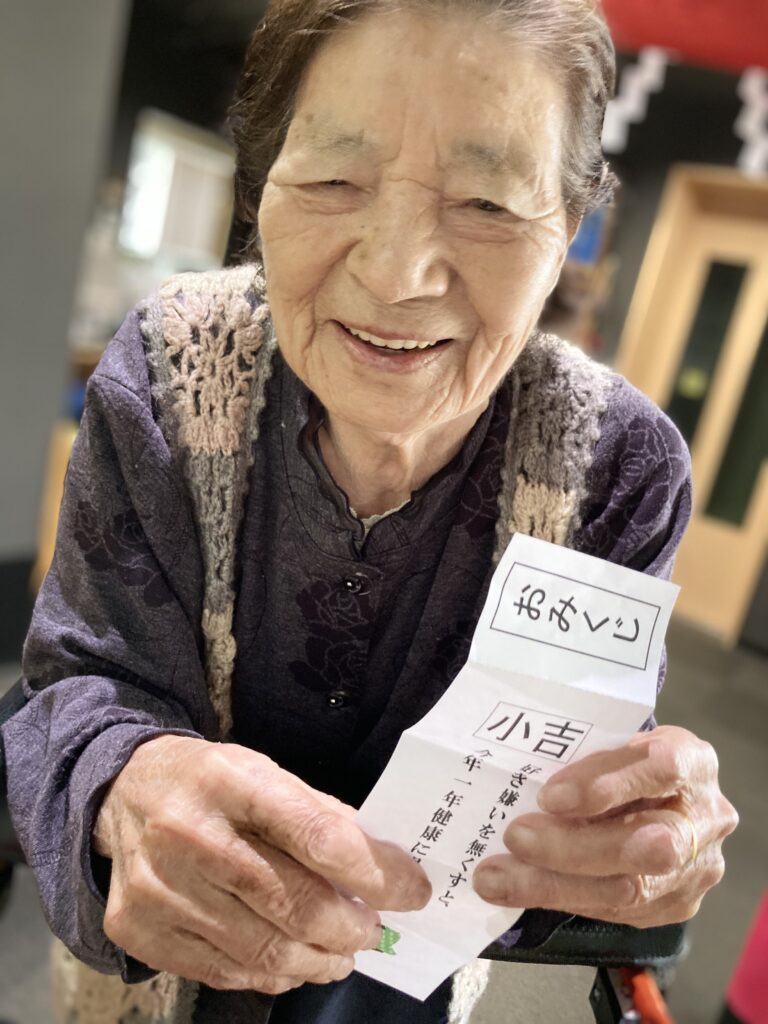 おみくじ
小吉
好き嫌いを無くすと、
今年一年健康に